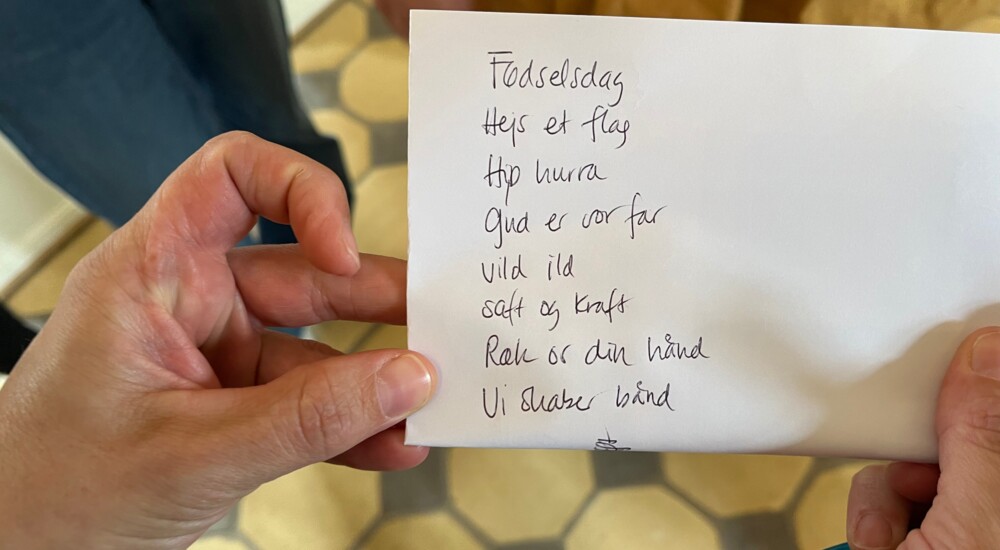 Fødselsdag
Hejs et flag
Hip hurra
Gud er vor far
vild ild
saft og kraft
Ræk os din hånd
Vi skaber bånd